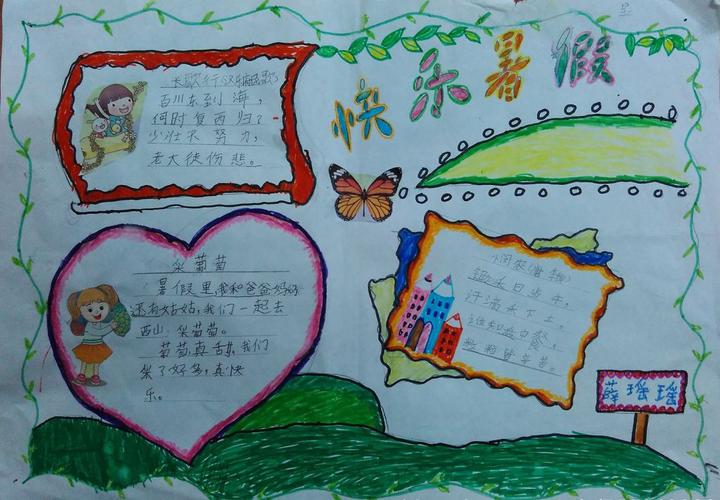 快乐暑假
长歌行(汉乐府民歌)
百川东到海，
何时复西归？
少壮不努力，
老大徒伤悲。
采葡萄
暑假里,我和爸爸妈妈
还有姑姑,我们一起去
西山采葡萄。
葡萄真甜,我们
采了好多,真快
乐。
悯农
锄禾日当午，
汗滴禾下土。
谁知盘中餐，
粒粒皆辛苦。
薛瑶瑶